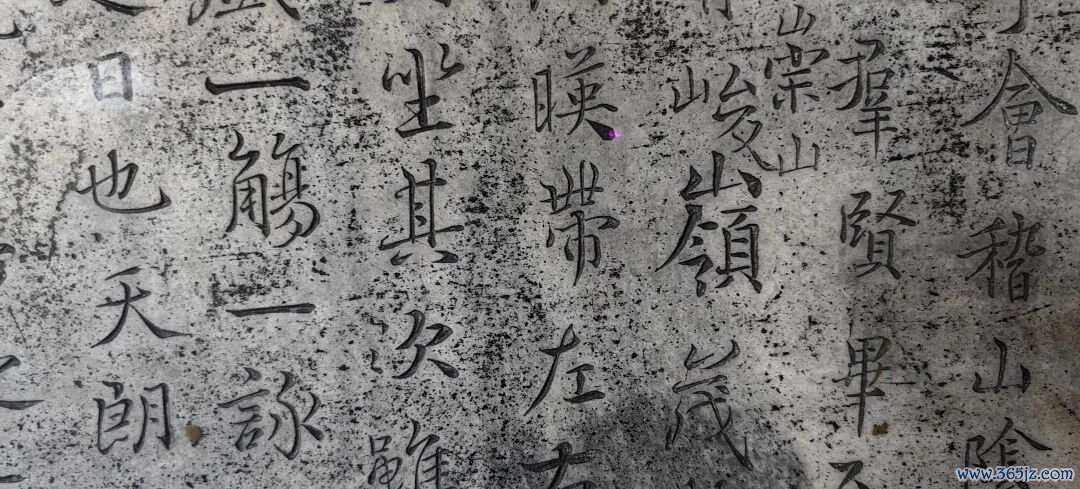 會稽山陰
羣賢畢
崇山
峻嶺茂
暎帶左右
坐其次雖
一觴一詠
日也天朗
www.365jz.com